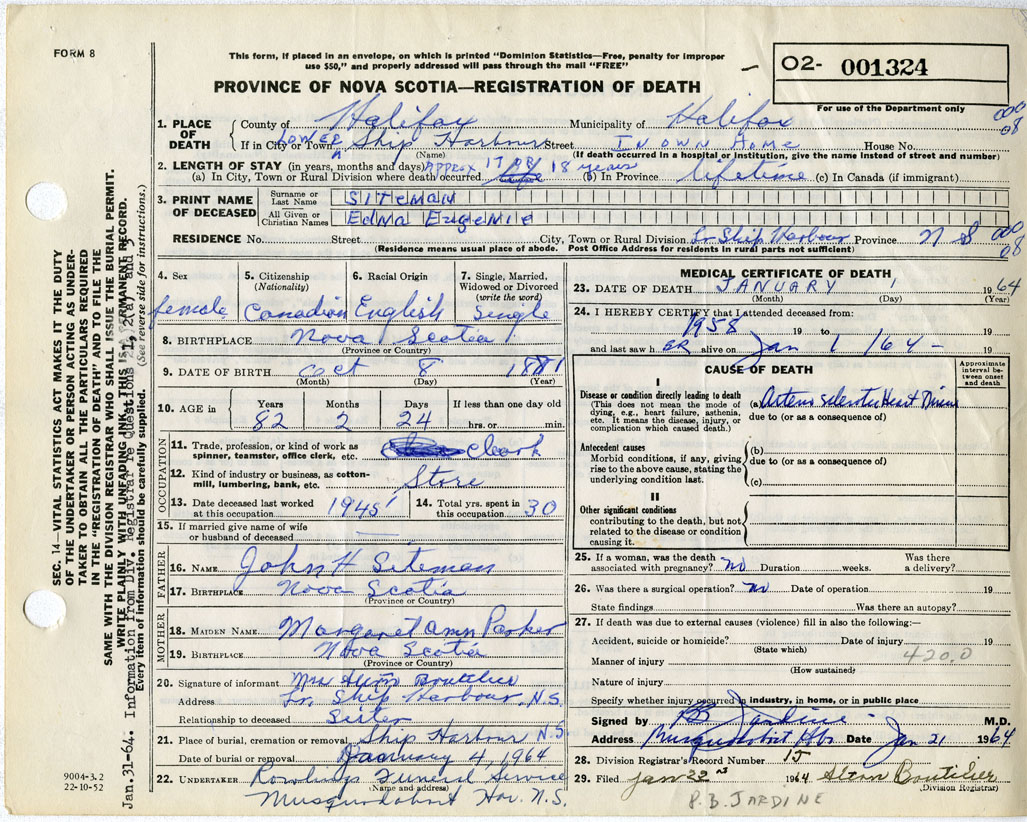 FORM 8
This form, if placed in an envelope, on which is printed "Dominion Statistics—Free, penalty for improper
use $50," and properly addressed will pass through the mail "FREE"
PROVINCE OF NOVA SCOTIA—REGISTRATION OF DEATH
O2- 001324
For use of the Department only
000
08
1. PLACE OF DEATH
County of Halifax Municipality of Halifax
If in City or Town Lower Ship Harbour Street In own Home House No.
(Name) (If death occurred in a hospital or institution, give the name instead of street and number)
2. LENGTH OF STAY (in years, months and days) Approx 17 or 18 years
(a) In City, Town or Rural Division where death occurred (b) In Province lifetime (c) In Canada (if immigrant)
3. PRINT NAME OF DECEASED
Surname or Last Name SITEMAN
All Given or Christian Names Edna Eugenie
RESIDENCE No. Street City, Town or Rural Division Lr Ship Harbour Province N S
000
08
(Residence means usual place of abode. Post Office Address for residents in rural parts not sufficient)
4. Sex female
5. Citizenship (Nationality) Canadian
6. Racial Origin English
7. Single, Married, Widowed or Divorced (write the word) Single
8. BIRTHPLACE Nova Scotia
(Province or Country)
9. DATE OF BIRTH Oct 8 1881
(Month) (Day) (Year)
10. AGE in Years 82 Months 2 Days 24 If less than one day old hrs. or min.
OCCUPATION
11. Trade, profession, or kind of work as spinner, teamster, office clerk, etc. Clerk
12. Kind of industry or business, as cotton-mill, lumbering, bank, etc. Store
13. Date deceased last worked at this occupation 1945
14. Total yrs. spent in this occupation 30
15. If married give name of wife or husband of deceased —
FATHER
16. NAME John H Siteman
17. BIRTHPLACE Nova Scotia
(Province or Country)
MOTHER
18. MAIDEN NAME Margaret Ann Parker
19. BIRTHPLACE Nova Scotia
(Province or Country)
20. Signature of informant Mrs Boutilier
Address Lr. Ship Harbour, N.S.
Relationship to deceased Sister
21. Place of burial, cremation or removal Ship Harbour N.S
Date of burial or removal January 4, 1964
22. UNDERTAKER Rowlings Funeral Service
(Name and address)
Musquodoboit Har. N.S.
MEDICAL CERTIFICATE OF DEATH
23. DATE OF DEATH JANUARY 1 1964
(Month) (Day) (Year)
24. I HEREBY CERTIFY that I attended deceased from:
1958 19 to 19
and last saw h ER alive on Jan 1 /64 - 19
CAUSE OF DEATH
Approximate interval between onset and death
I
Disease or condition directly leading to death
(This does not mean the mode of dying, e.g., heart failure, asthenia, etc. It means the disease, injury, or complication which caused death.)
(a) Arteriosclerotic Heart Disease
due to (or as a consequence of)
Antecedent causes
Morbid conditions, if any, giving rise to the above cause, stating the underlying condition last.
(b)
due to (or as a consequence of)
(c)
II
Other significant conditions
contributing to the death, but not related to the disease or condition causing it.
25. If a woman, was the death associated with pregnancy? no Duration weeks. Was there a delivery?
26. Was there a surgical operation? no Date of operation 19
State findings Was there an autopsy?
27. If death was due to external causes (violence) fill in also the following:—
Accident, suicide or homicide? Date of injury 19
(State which)
420.0
Manner of injury
(How sustained)
Nature of injury
Specify whether injury occurred in industry, in home, or in public place
Signed by PB Jardine M.D.
Address Musquodoboit Hbr Date Jan 21 1964
28. Division Registrar's Record Number 15
29. Filed Jan 22nd 1964 Alton Boutilier
(Division Registrar)
P.B. JARDINE
SEC. 14—VITAL STATISTICS ACT MAKES IT THE DUTY
OF THE UNDERTAKER OR PERSON ACTING AS UNDER-
TAKER TO OBTAIN ALL THE PARTICULARS REQUIRED
IN THE "REGISTRATION OF DEATH" AND TO FILE THE
SAME WITH THE DIVISION REGISTRAR WHO SHALL ISSUE THE BURIAL PERMIT.
WRITE PLAINLY WITH UNFADING INK. THIS IS PERMANENT RECORD.
Jan.31-64. Information from Div. Registrar re questions 1, 2(a) and 3
Every item of information should be carefully supplied. (See reverse side for instructions.)
9004-3.2
22-10-52